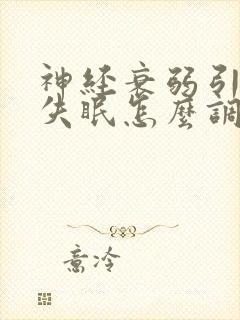 神經衰弱引
失眠怎麼調
意冷